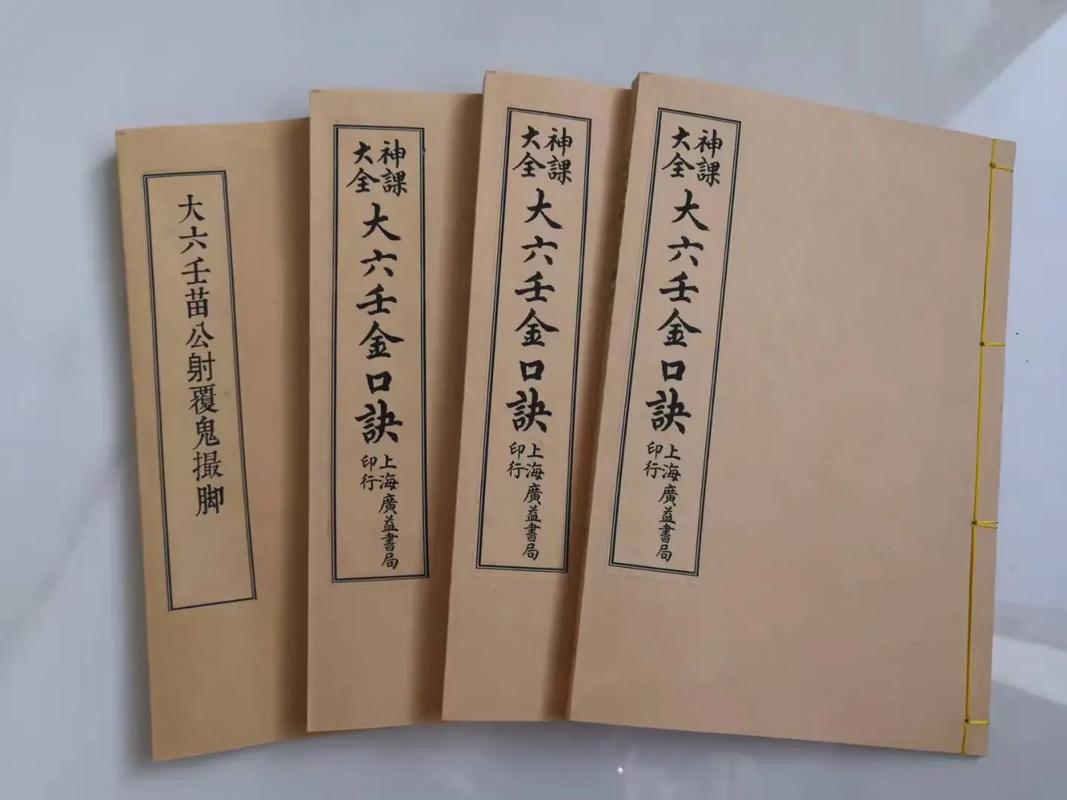 大六壬苗公射覆鬼撮脚
神課
大全
大六壬金口訣
上海廣益書局
印行
神課
大全
大六壬金口訣
上海廣益書局
印行
神課
大全
大六壬金口訣
上海廣益書局
印行